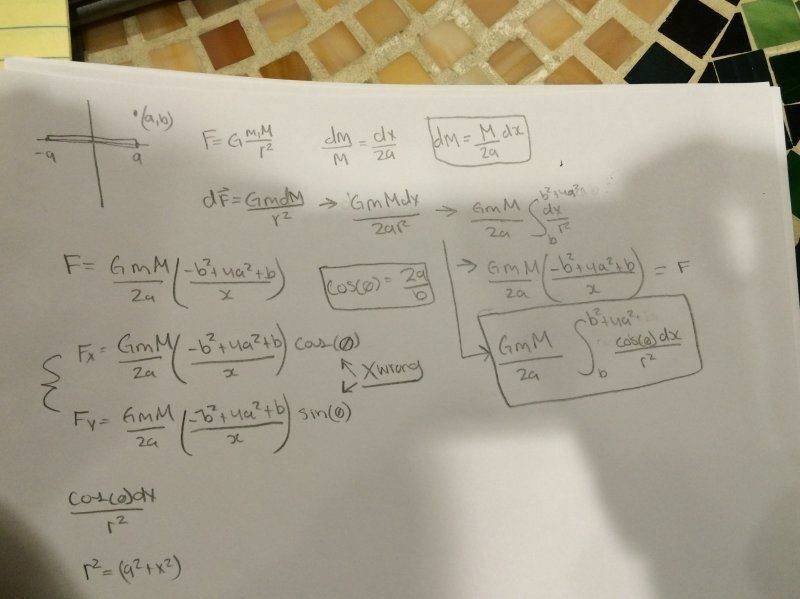 •(a,b)
-a a
F = G m₁M/r²   dM/M = dx/2a   dM = M/2a dx
dF⃗ = GmdM/r² → GmMdx/2ar² → GmM/2a ∫_b^{b²+4a²} dx/r²
F = GmM/2a (-b²+4a²+b/x)   cos(θ) = 2a/b   → GmM/2a (-b²+4a²+b/x) = F
Fx = GmM/2a (-b²+4a²+b/x) cos(θ)   GmM/2a ∫_b^{b²+4a²} cos(θ)dx/r²
X wrong
Fy = GmM/2a (-b²+4a²+b/x) sin(θ)
cos(θ)dx/r²
r² = (a²+x²)